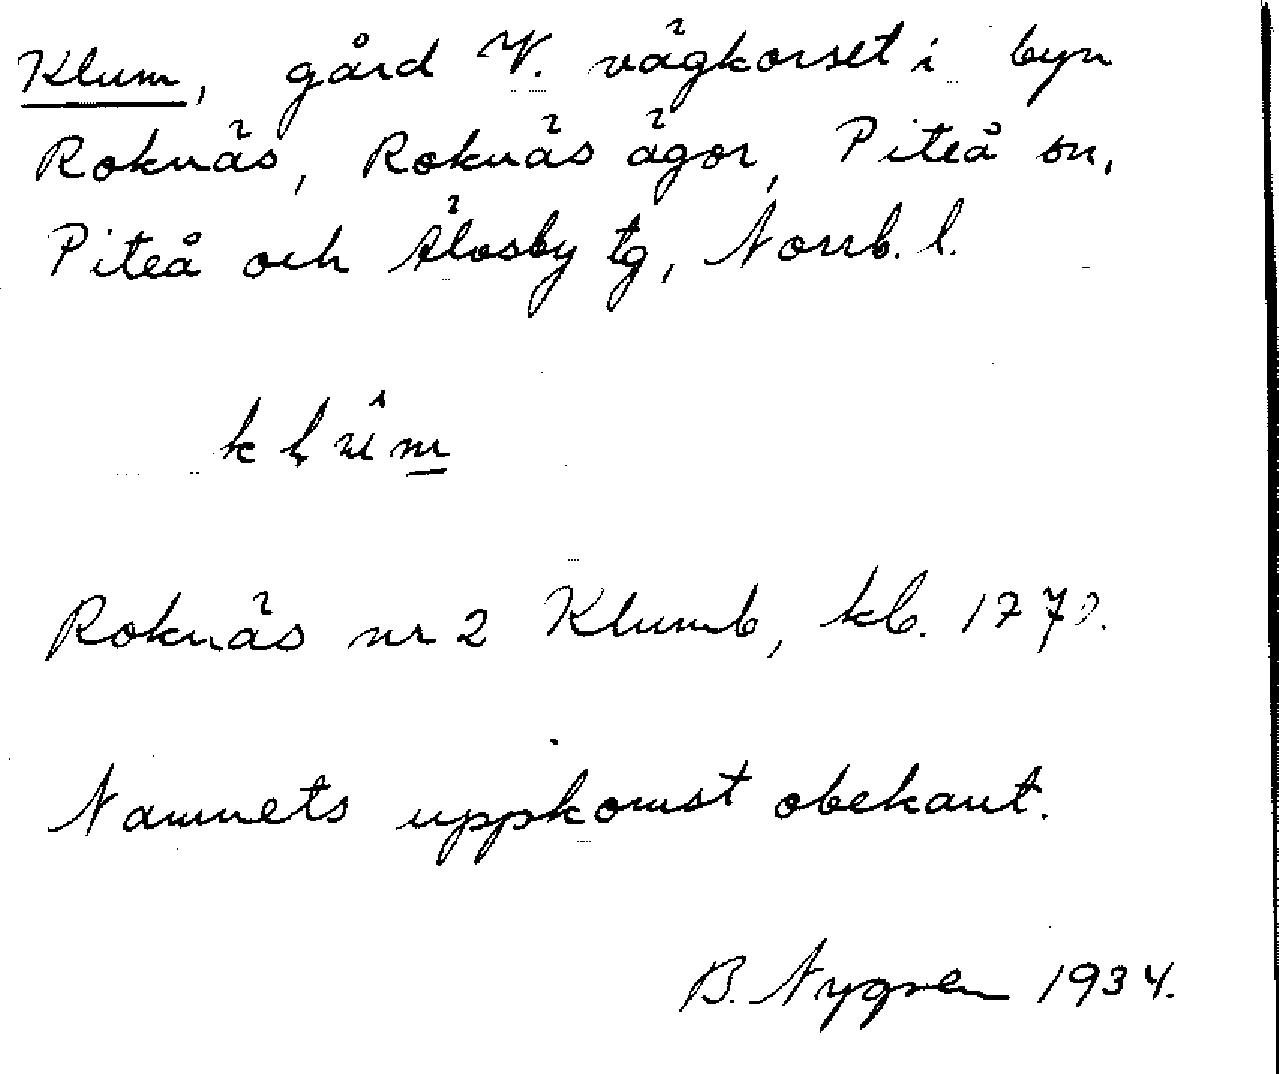 Klum, gård V. vägkorset i byn
Roknäs, Roknäs ägor, Piteå sn,
Piteå och Älvsby tg, Norrb. l.
Roknäs nr 2 Klumb, kb.
Namnets uppkomst obekant.
B. Nygren 1934.